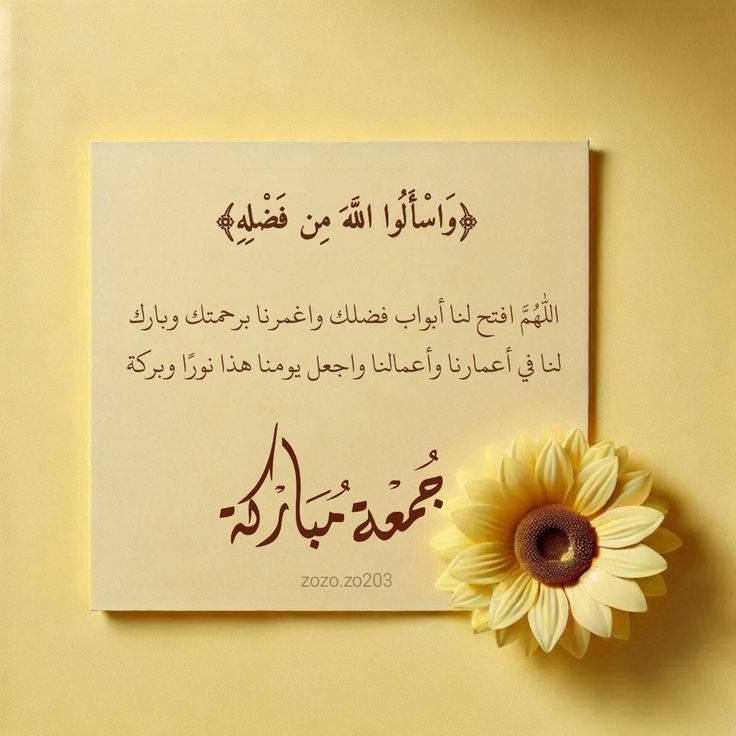 ﴿وَاسْأَلُوا اللَّهَ مِن فَضْلِهِ﴾
اللَّهُمَّ افتح لنا أبواب فضلك واغمرنا برحمتك وبارك
لنا في أعمارنا وأعمالنا واجعل يومنا هذا نورًا وبركة
جُمْعة مُبَارْكة
zozo.zo203